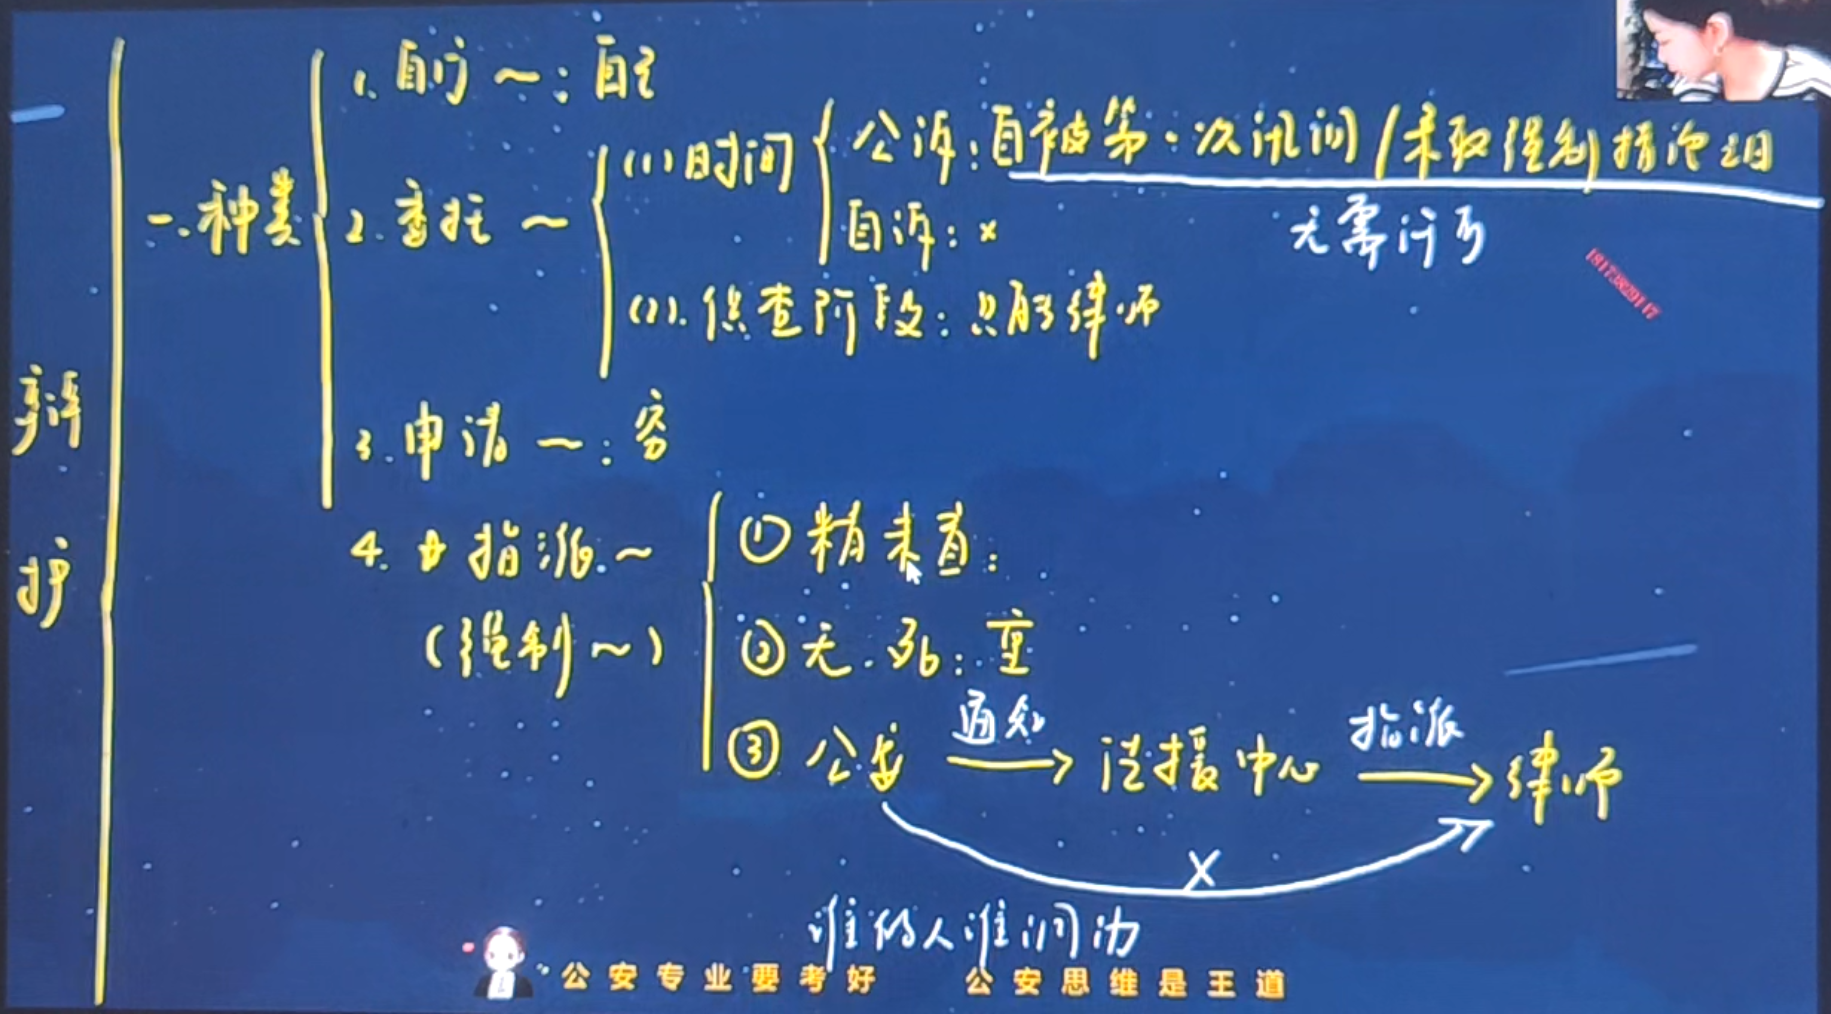 辩护
一.种类
1. 自行~：自己
2. 委托~
(1) 时间
公诉：自被第一次讯问/采取强制措施之日
无需许可
自诉：×
(2). 侦查阶段：只能律师
3. 申请~：穷
4. 指派~
(强制~)
① 精未盲：
② 无.死：重
③ 公安 通知→ 法援中心 指派→ 律师
×
谁的人谁调动
公安专业要考好 公安思维是王道